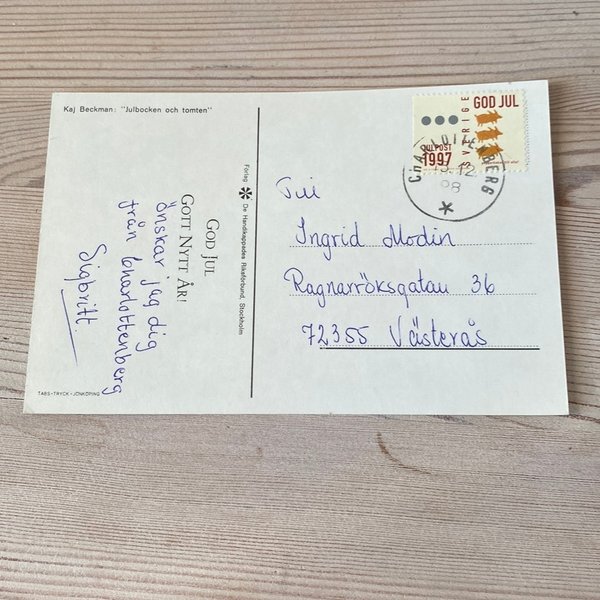 Kaj Beckman: "Julbocken och tomten"
GOD JUL
GOTT NYTT ÅR!
önskar jag dig
från Charlottenberg
Sigbritt
TABS-TRYCK-JÖNKÖPING
Förlag De Handikappades Riksförbund, Stockholm
GOD JUL
SVERIGE
JULPOST
1997
CHARLOTTENBERG
12
98
Till
Ingrid Modin
Ragnarröksgatan 36
72355 Västerås